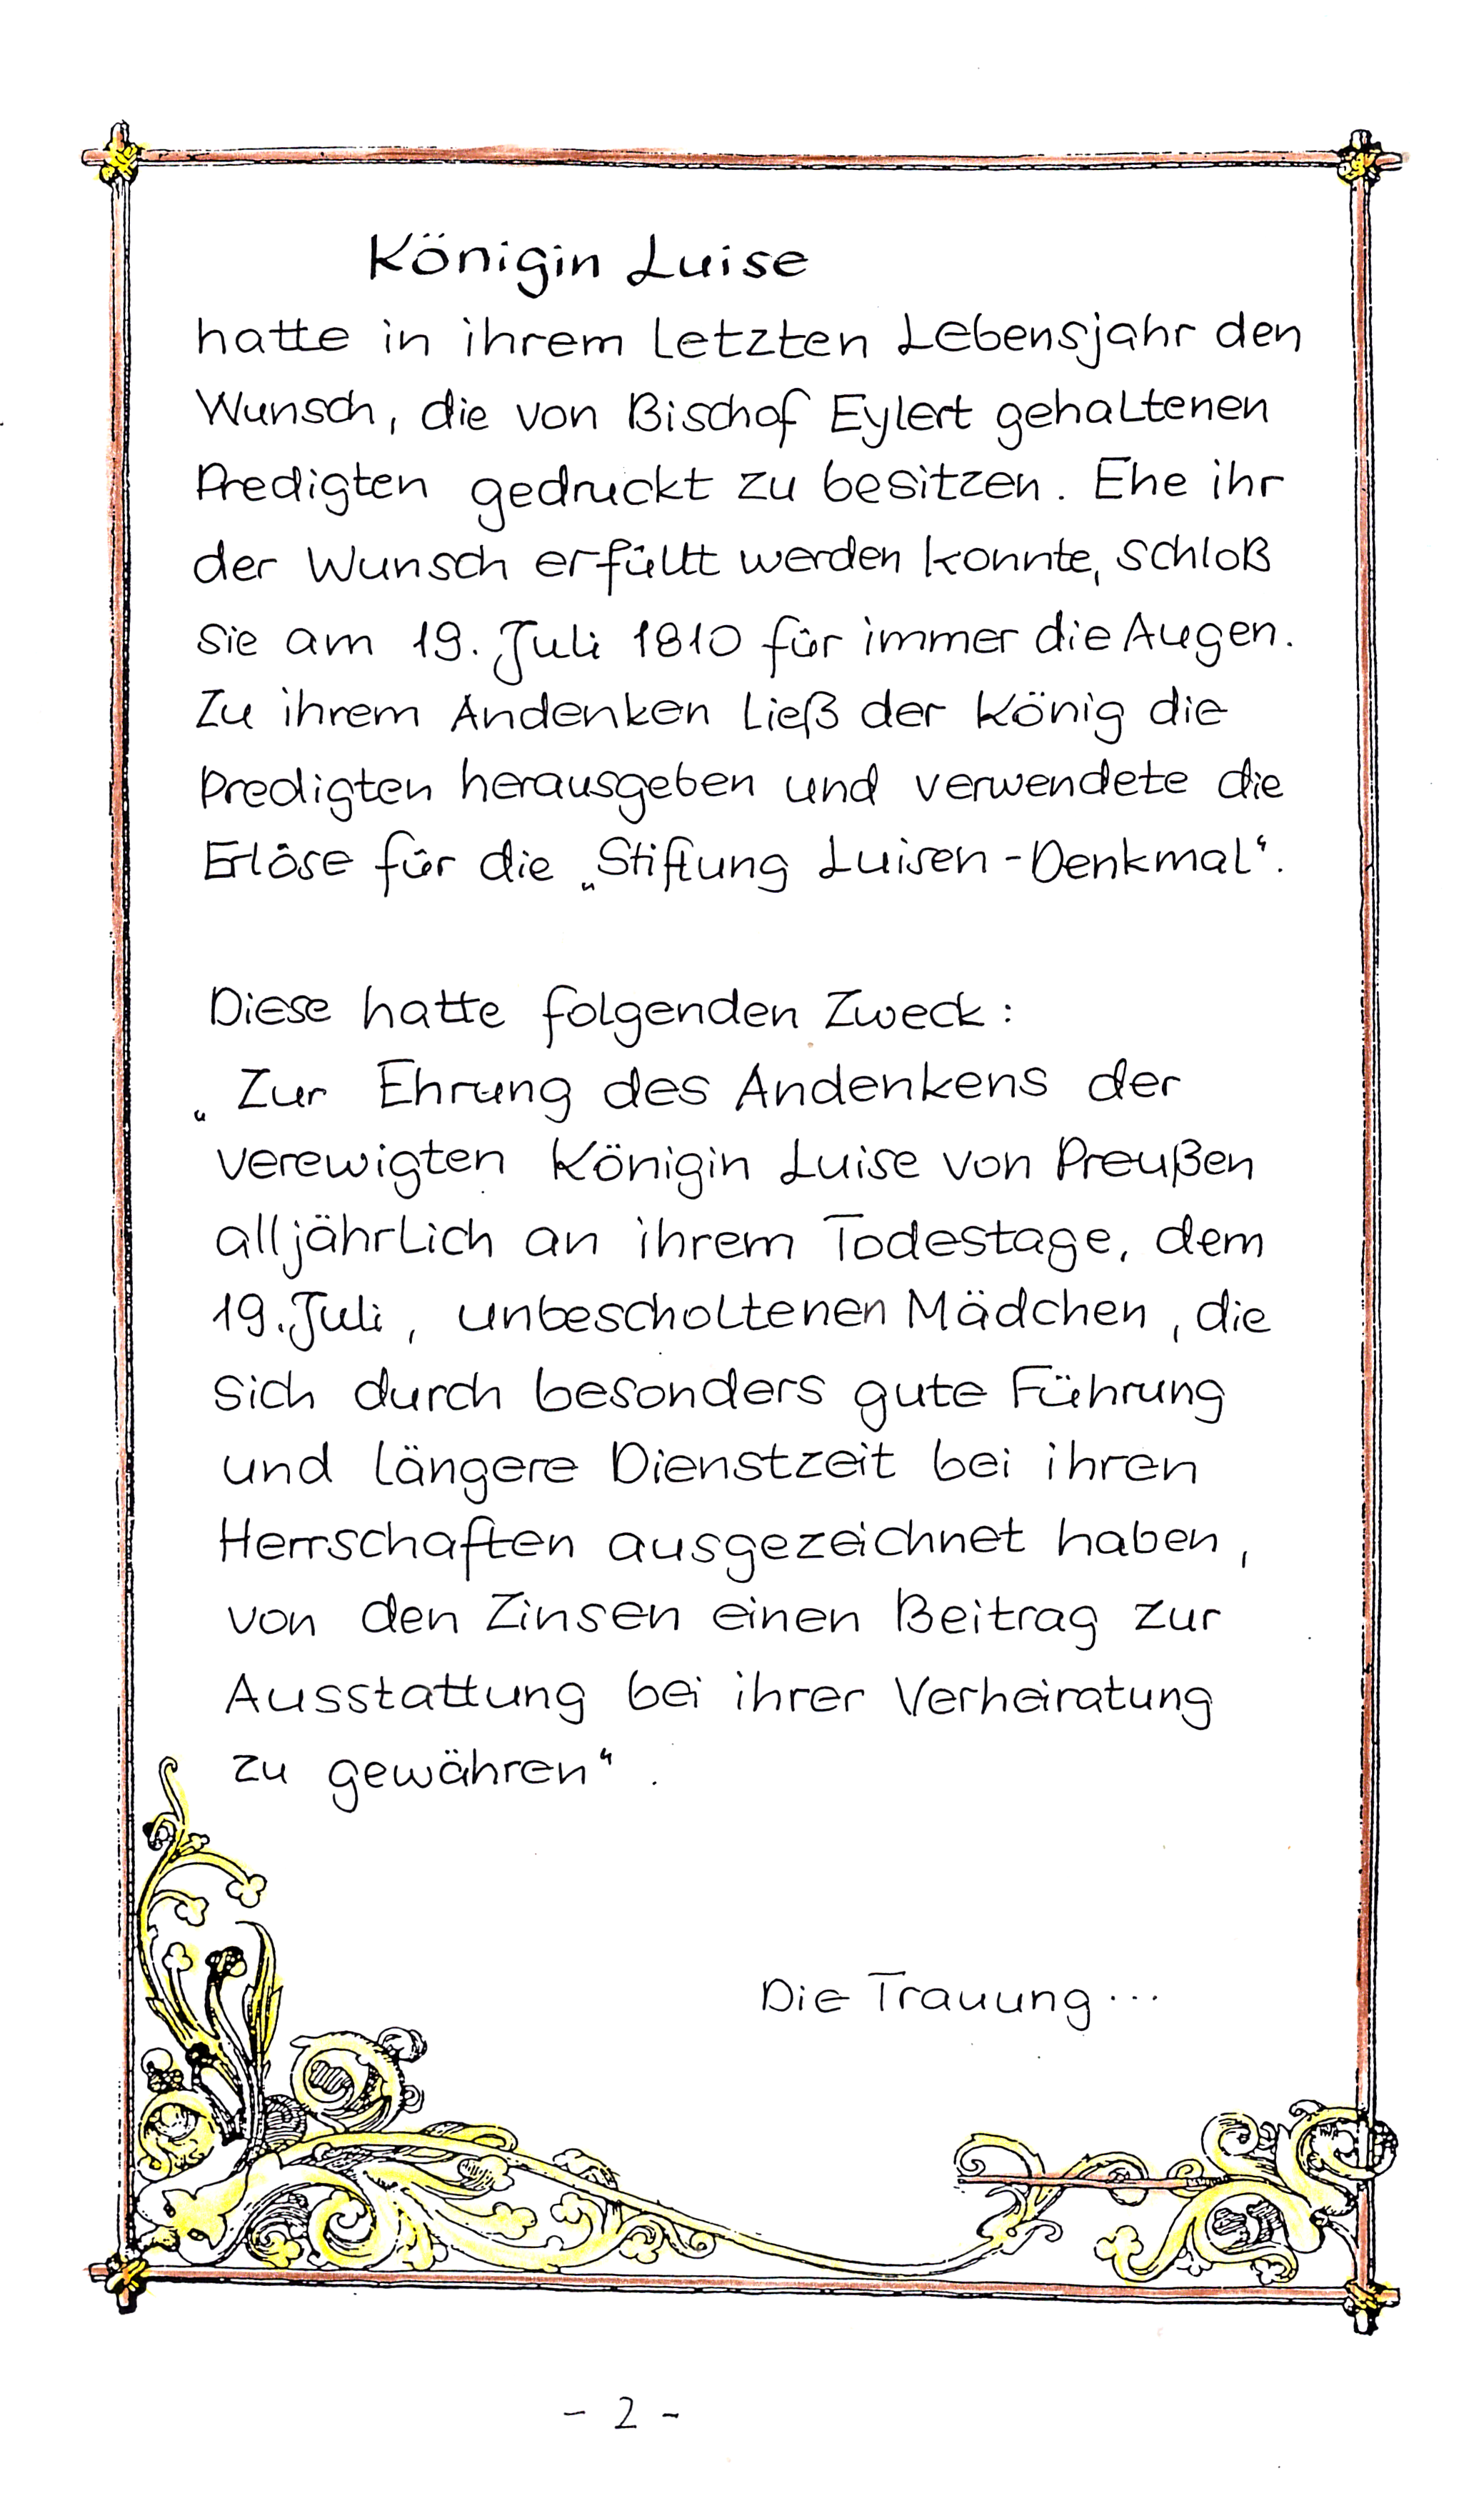 Königin Luise
hatte in ihrem letzten Lebensjahr den
Wunsch, die von Bischof Eylert gehaltenen
Predigten gedruckt zu besitzen. Ehe ihr
der Wunsch erfüllt werden konnte, schloß
sie am 19. Juli 1810 für immer die Augen.
Zu ihrem Andenken ließ der König die
Predigten herausgeben und verwendete die
Erlöse für die „Stiftung Luisen-Denkmal“.
Diese hatte folgenden Zweck:
„Zur Ehrung des Andenkens der
verewigten Königin Luise von Preußen
alljährlich an ihrem Todestage, dem
19. Juli, unbescholtenen Mädchen, die
sich durch besonders gute Führung
und längere Dienstzeit bei ihren
Herrschaften ausgezeichnet haben,
von den Zinsen einen Beitrag zur
Ausstattung bei ihrer Verheiratung
zu gewähren“.
Die Trauung...
- 2 -